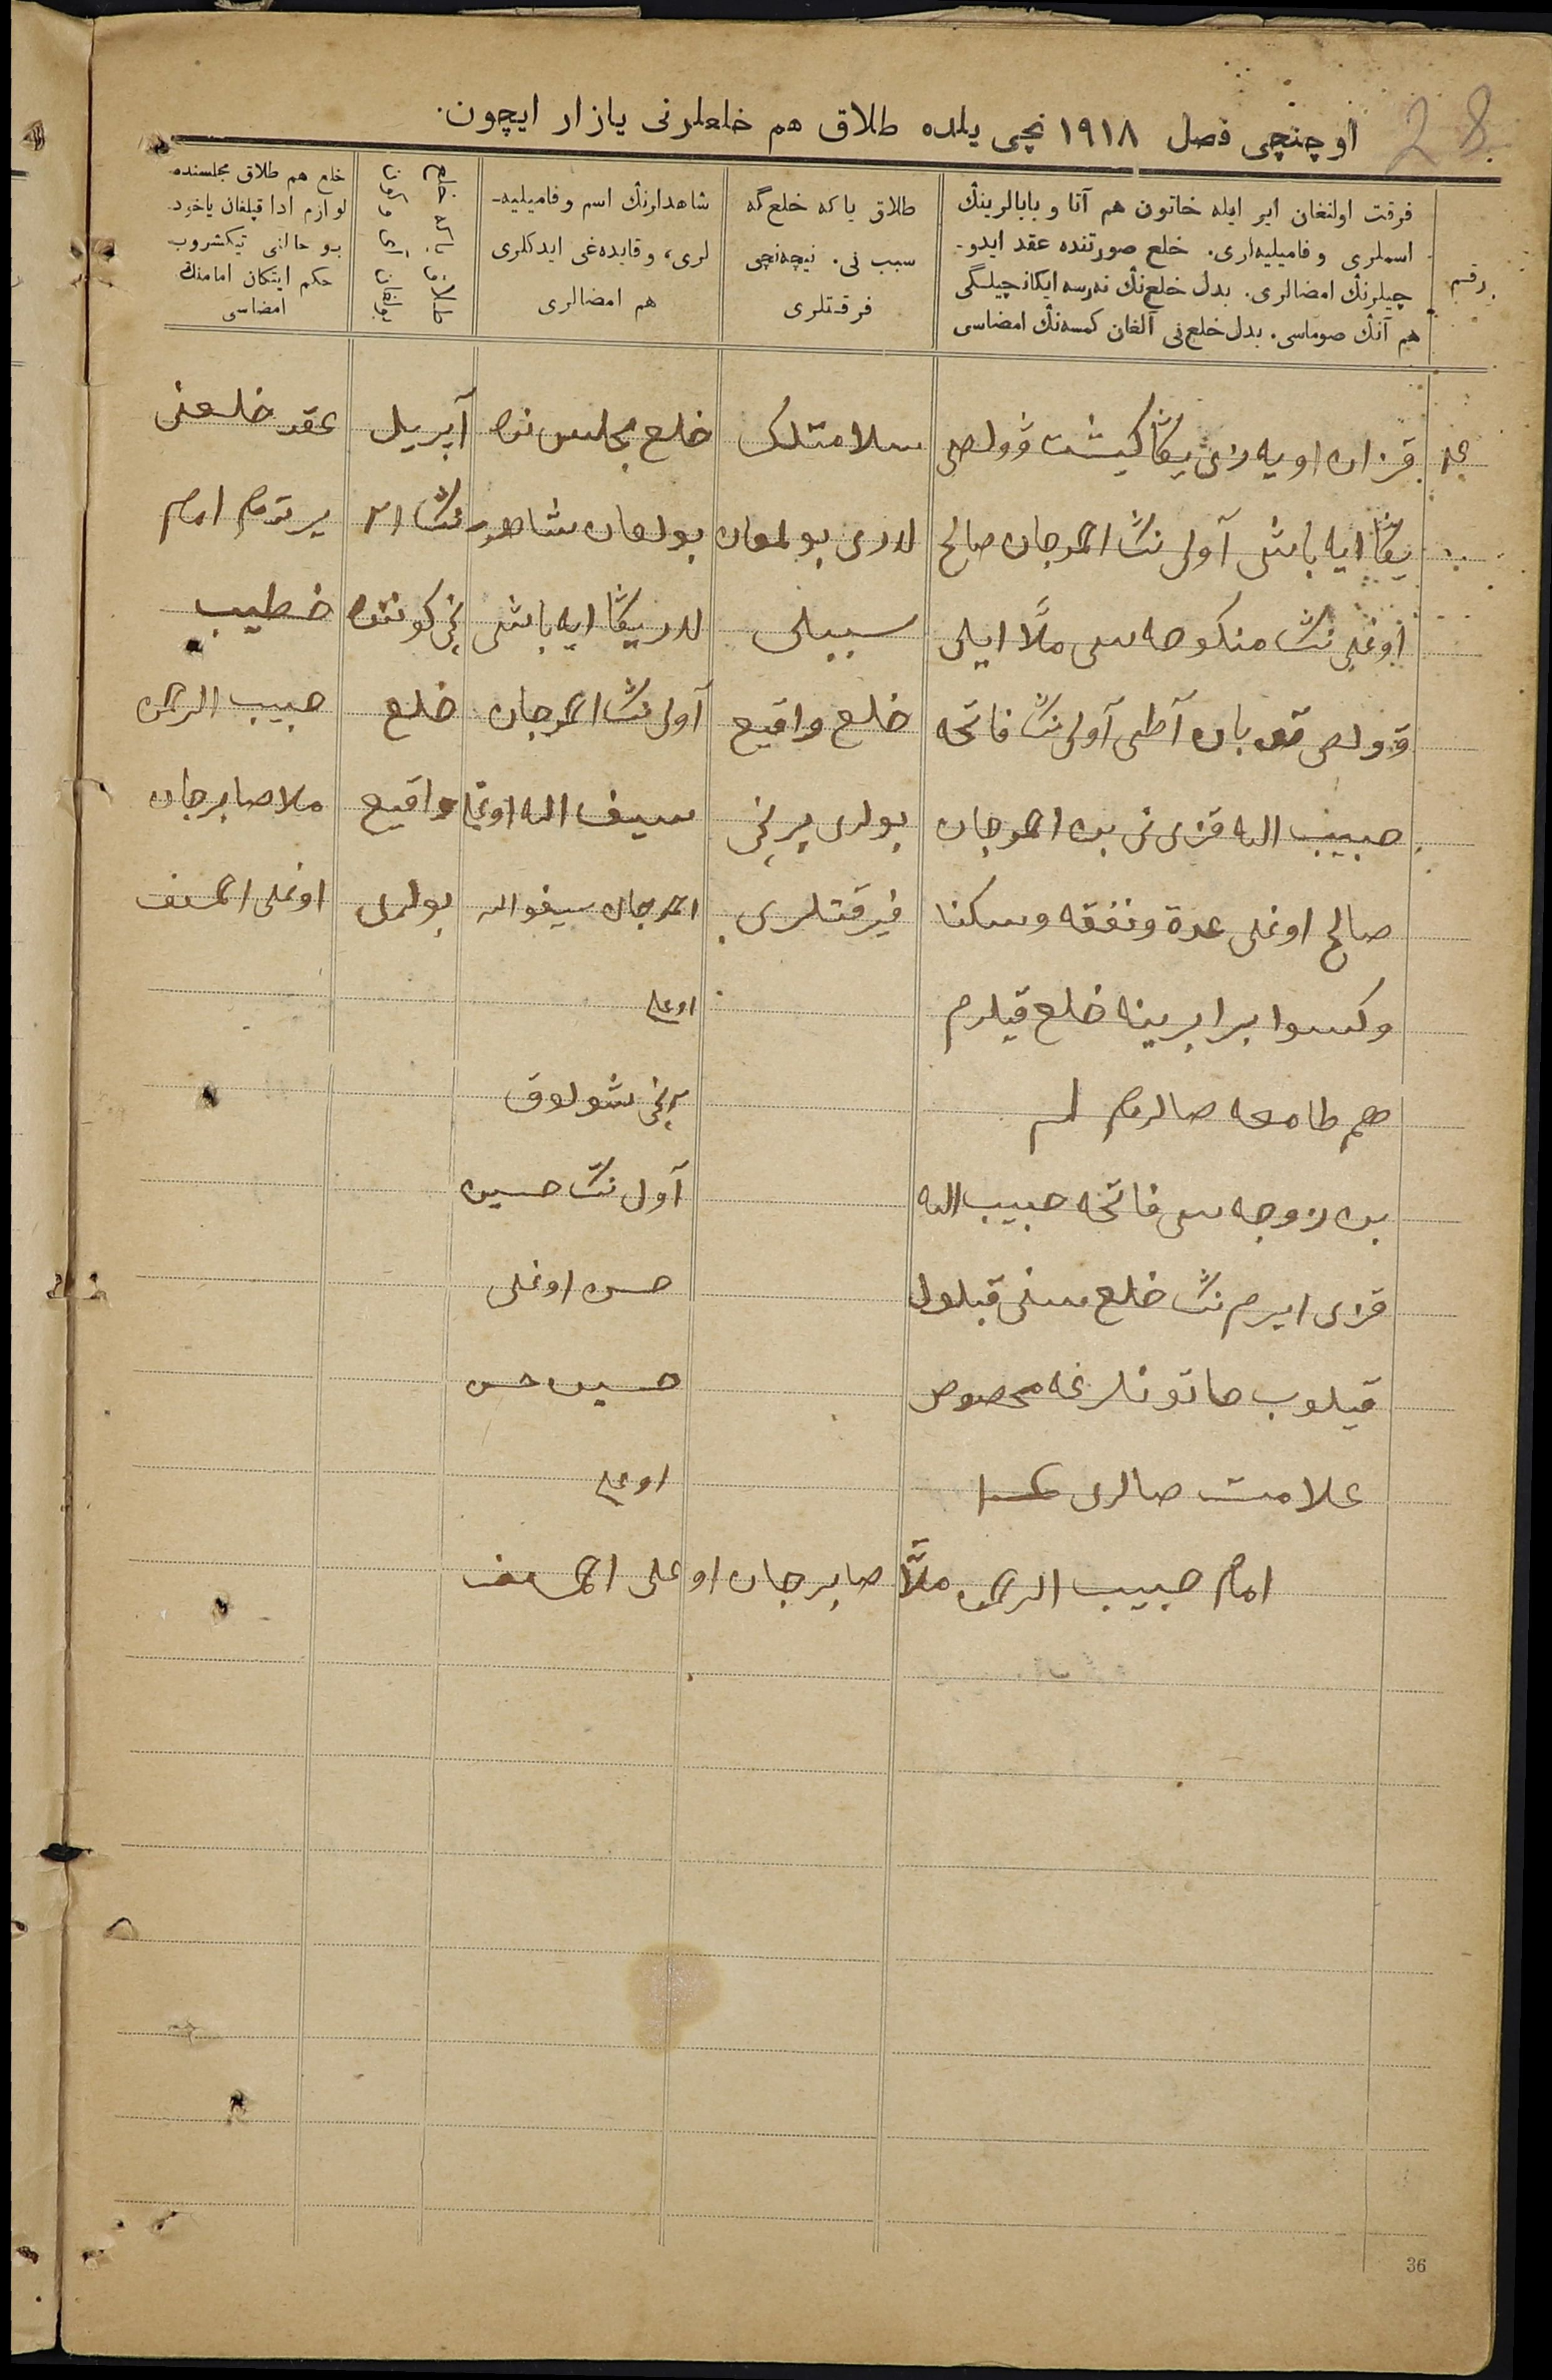 28
اوچنچی فصل ١٩١٨ نچی یلده طلاق هم خلعلرنی یازار ایچون.
رقم
فرقت اولنغان ایر ایله خاتون هم آتا و بابالرینڭ
اسملری و فامیلیه‌لری. خلع صورتنده عقد ایدو-
چیلرنڭ امضالری. بدل خلع‌نڭ نه‌رسه ایکانچیلگی
هم آنڭ صوماسی. بدل خلع‌نی آلغان کمسه‌نڭ امضاسی
طلاق یا که خلع گه
سبب نی. نیچه‌نچی
فرقتلری
شاهدلرنڭ اسم و فامیلیه-
لری، و قایده‌غی ایدکلری
هم امضالری
خلع هم طلاق مجلسنده
لوازم ادا قیلغان یاخود
بو حالنی تیکشروب
حکم ایتکان امامنڭ
امضاسی
قزان اویه‌زی یڭاکیشت وولصی
یڭا ایه باشی آولی ننڭ احمدجان صالح
اوغلی ننڭ منکوحه‌سی ملّا ایلی
وولصی آطی آولی ننڭ فاتحه
حبیب الله قزی نی بن احمدجان
صالح اوغلی عدة و نفقه و سکنا
و کسوا برابرینه خلع قیلدم
هم طامغه صالدم
بن زوجه‌سی فاتحه حبیب الله
قزی ایرم ننڭ خلع سنی قبلول
قیلوب خاتونلرغه مخصوص
علامت صالدی
سلامتلک
لدری بولمغان
سببلی
خلع واقیع
بولدی برنچی
فیرقتلری
خلع مجلس نده
بولغان شاهد
لدر یڭا ایه باشی
آولی ننڭ احمدجان
سیف الله اوغلی
احمدجان سیفوالله
اوغلی
٢نچی شولوق
آول ننڭ حسین
حسن اوغلی
حسین حسن
اوغلی
آپریل
ننڭ ٢١
نچی کونده
خلع
واقیع
بولمل
عقد خلعنی
یرتدم امام
خطیب
حبیب الرحمن
ملا صابرجان
اوغلی احمدیف
امام حبیب الرحمن ملّا صابرجان اوغلی احمدیف
36